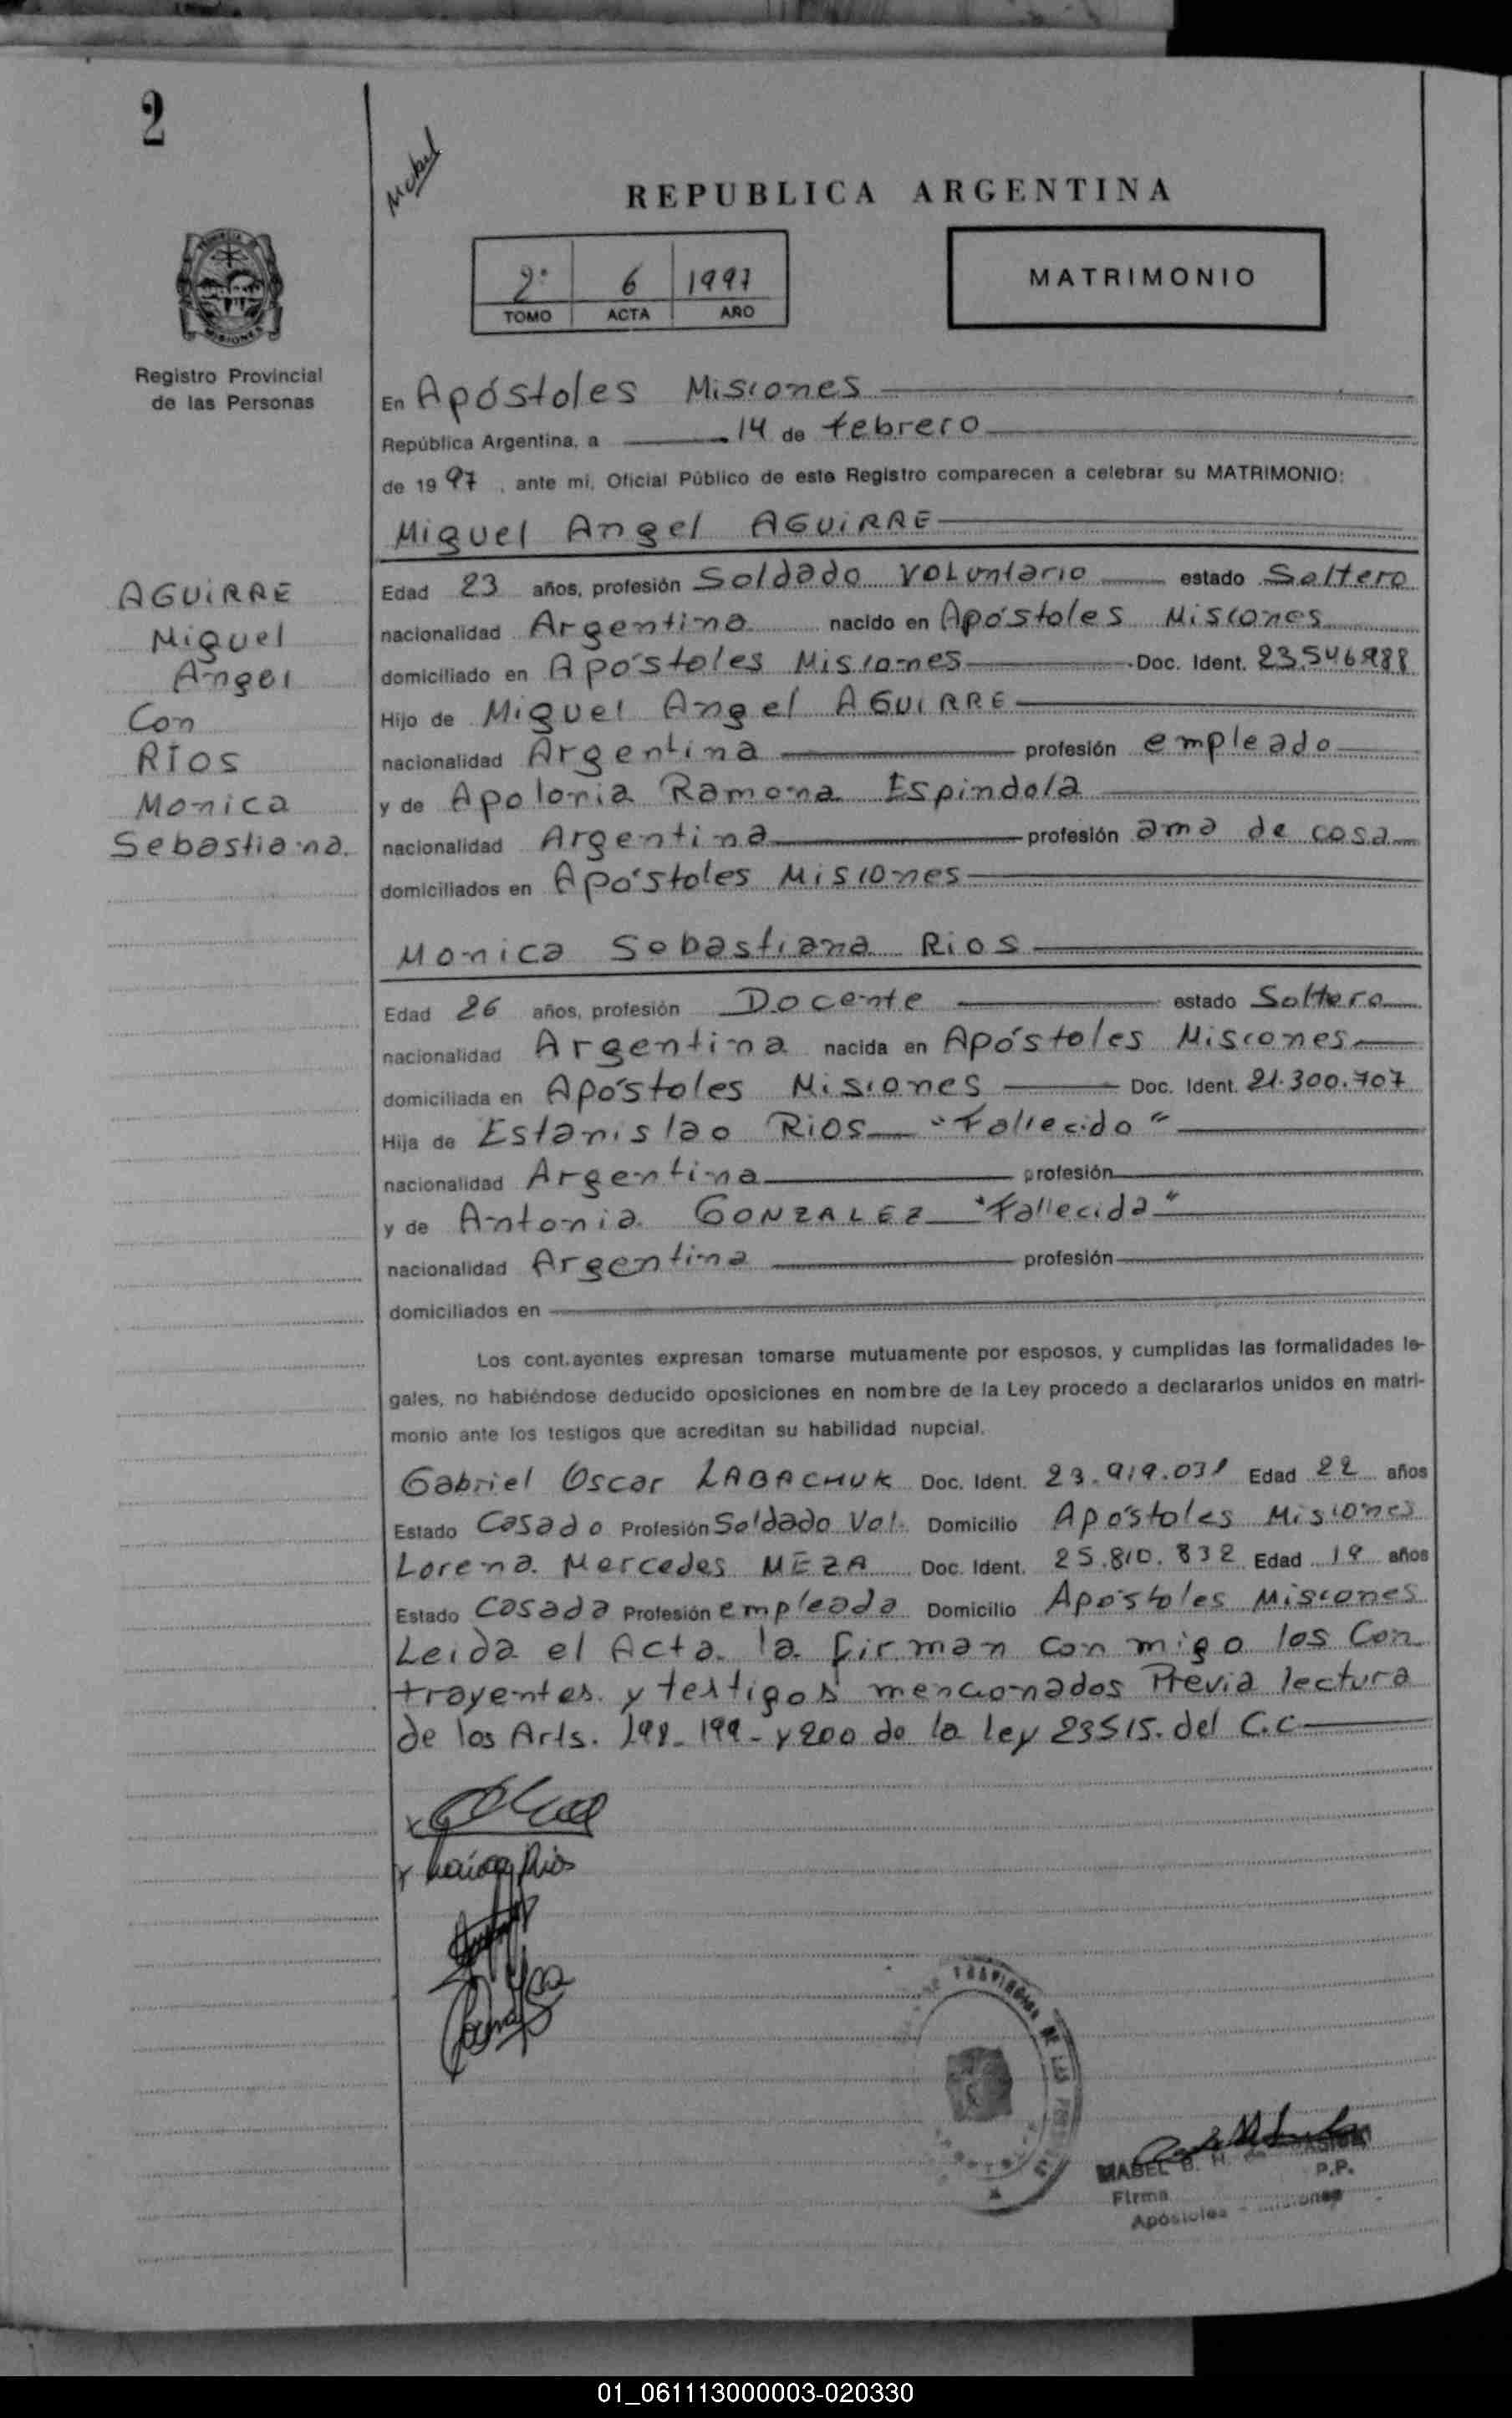 2
REPUBLICA ARGENTINA
2º 6 1997
TOMO ACTA AÑO
MATRIMONIO
Registro Provincial
de las Personas
AGUIRRE
Miguel
Angel
Con
RÍOS
Monica
Sebastiana.
En Apóstoles Misiones
República Argentina, a 14 de febrero
de 1997, ante mi, Oficial Público de este Registro comparecen a celebrar su MATRIMONIO:
Miguel Angel AGUIRRE
Edad 23 años, profesión Soldado Voluntario estado Soltero
nacionalidad Argentina nacido en Apóstoles Misiones
domiciliado en Apóstoles Misiones Doc. Ident. 23.546.988
Hijo de Miguel Angel AGUIRRE
nacionalidad Argentina profesión empleado
y de Apolonia Ramona Espindola
nacionalidad Argentina profesión ama de casa
domiciliados en Apóstoles Misiones
Monica Sebastiana Rios
Edad 26 años, profesión Docente estado Soltera
nacionalidad Argentina nacida en Apóstoles Misiones
domiciliada en Apóstoles Misiones Doc. Ident. 21.300.707
Hija de Estanislao Rios "Fallecido"
nacionalidad Argentina profesión
y de Antonia GONZALEZ "Fallecida"
nacionalidad Argentina profesión
domiciliados en
Los cont.ayentes expresan tomarse mutuamente por esposos, y cumplidas las formalidades le-
gales, no habiéndose deducido oposiciones en nombre de la Ley procedo a declararlos unidos en matri-
monio ante los testigos que acreditan su habilidad nupcial.
Gabriel Oscar LABACHUK Doc. Ident. 23.919.031 Edad 22 años
Estado Casado Profesión Soldado Vol. Domicilio Apóstoles Misiones
Lorena Mercedes MEZA Doc. Ident. 25.810.832 Edad 19 años
Estado Casada Profesión empleada Domicilio Apóstoles Misiones
Leida el Acta la firman con migo los Con
trayentes y testigos mencionados Previa lectura
de los Arts. 198- 199- y 200 de la ley 23515. del C.C
Rios
MABEL B. H.
P.P.
Firma
Apóstoles
01_061113000003-020330